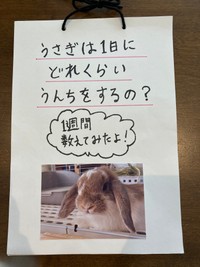 うさぎは1日に
どれくらい
うんちをするの?
1週間
数えてみたよ!